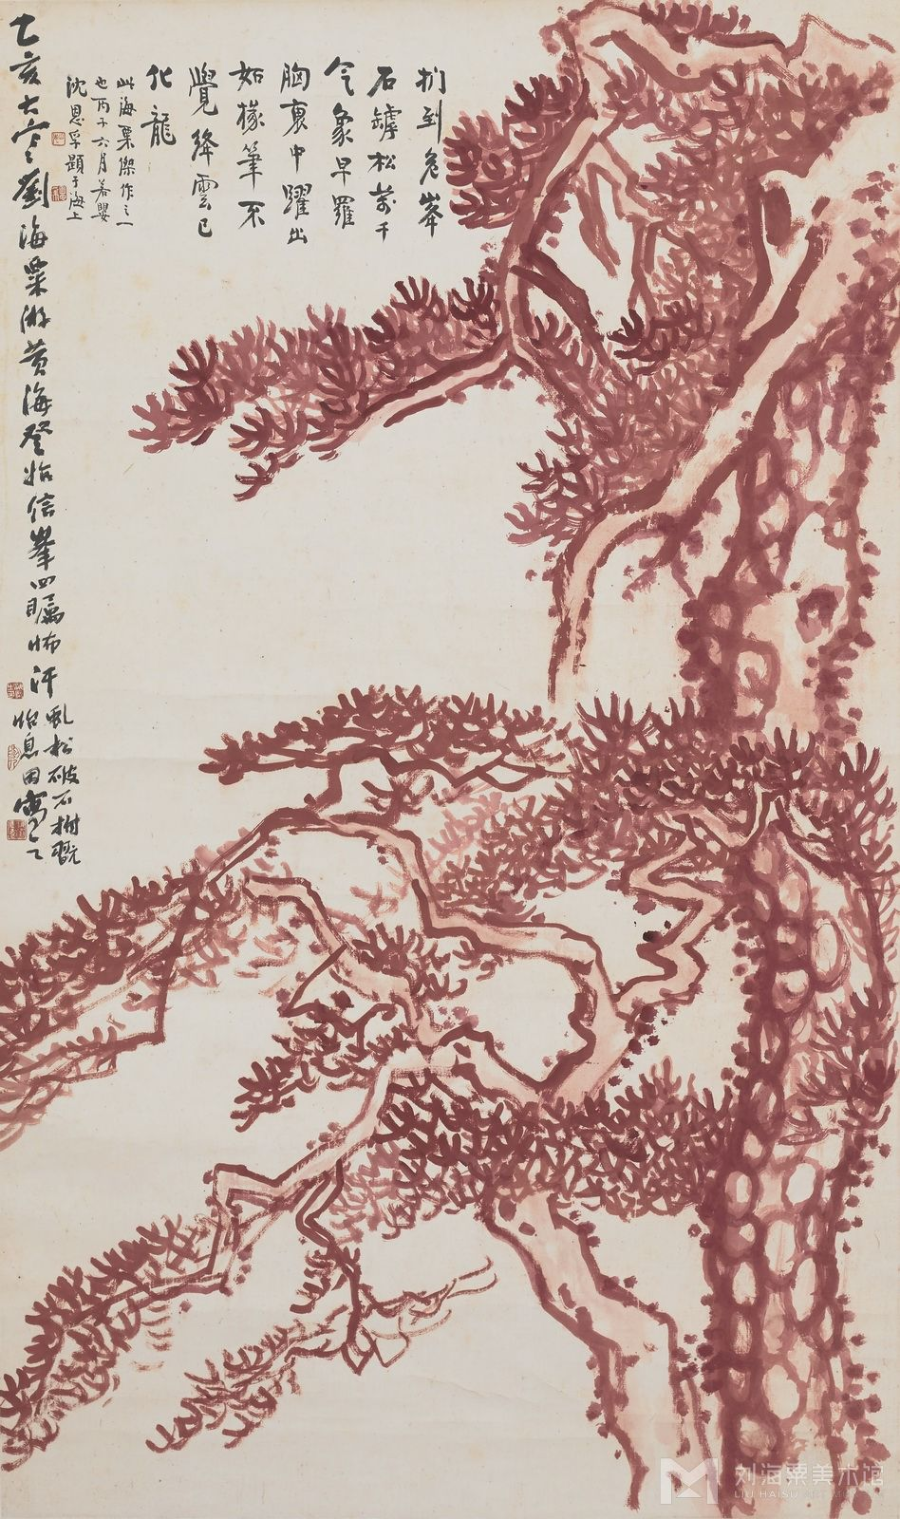 捫到危峯
石罅松萬千
氣象早羅
胸裏中躍出
如椽筆不
覺絳雲已
化龍
此海粟傑作之一
也丙子六月若嬰
沈恩孚題于海上
乙亥大寒劉海粟游黄海登始信峯四矚怖汗
亂松破石柎翫
怡息因寫之
刘海粟美术馆
LIU HAISU ART MUSEUM